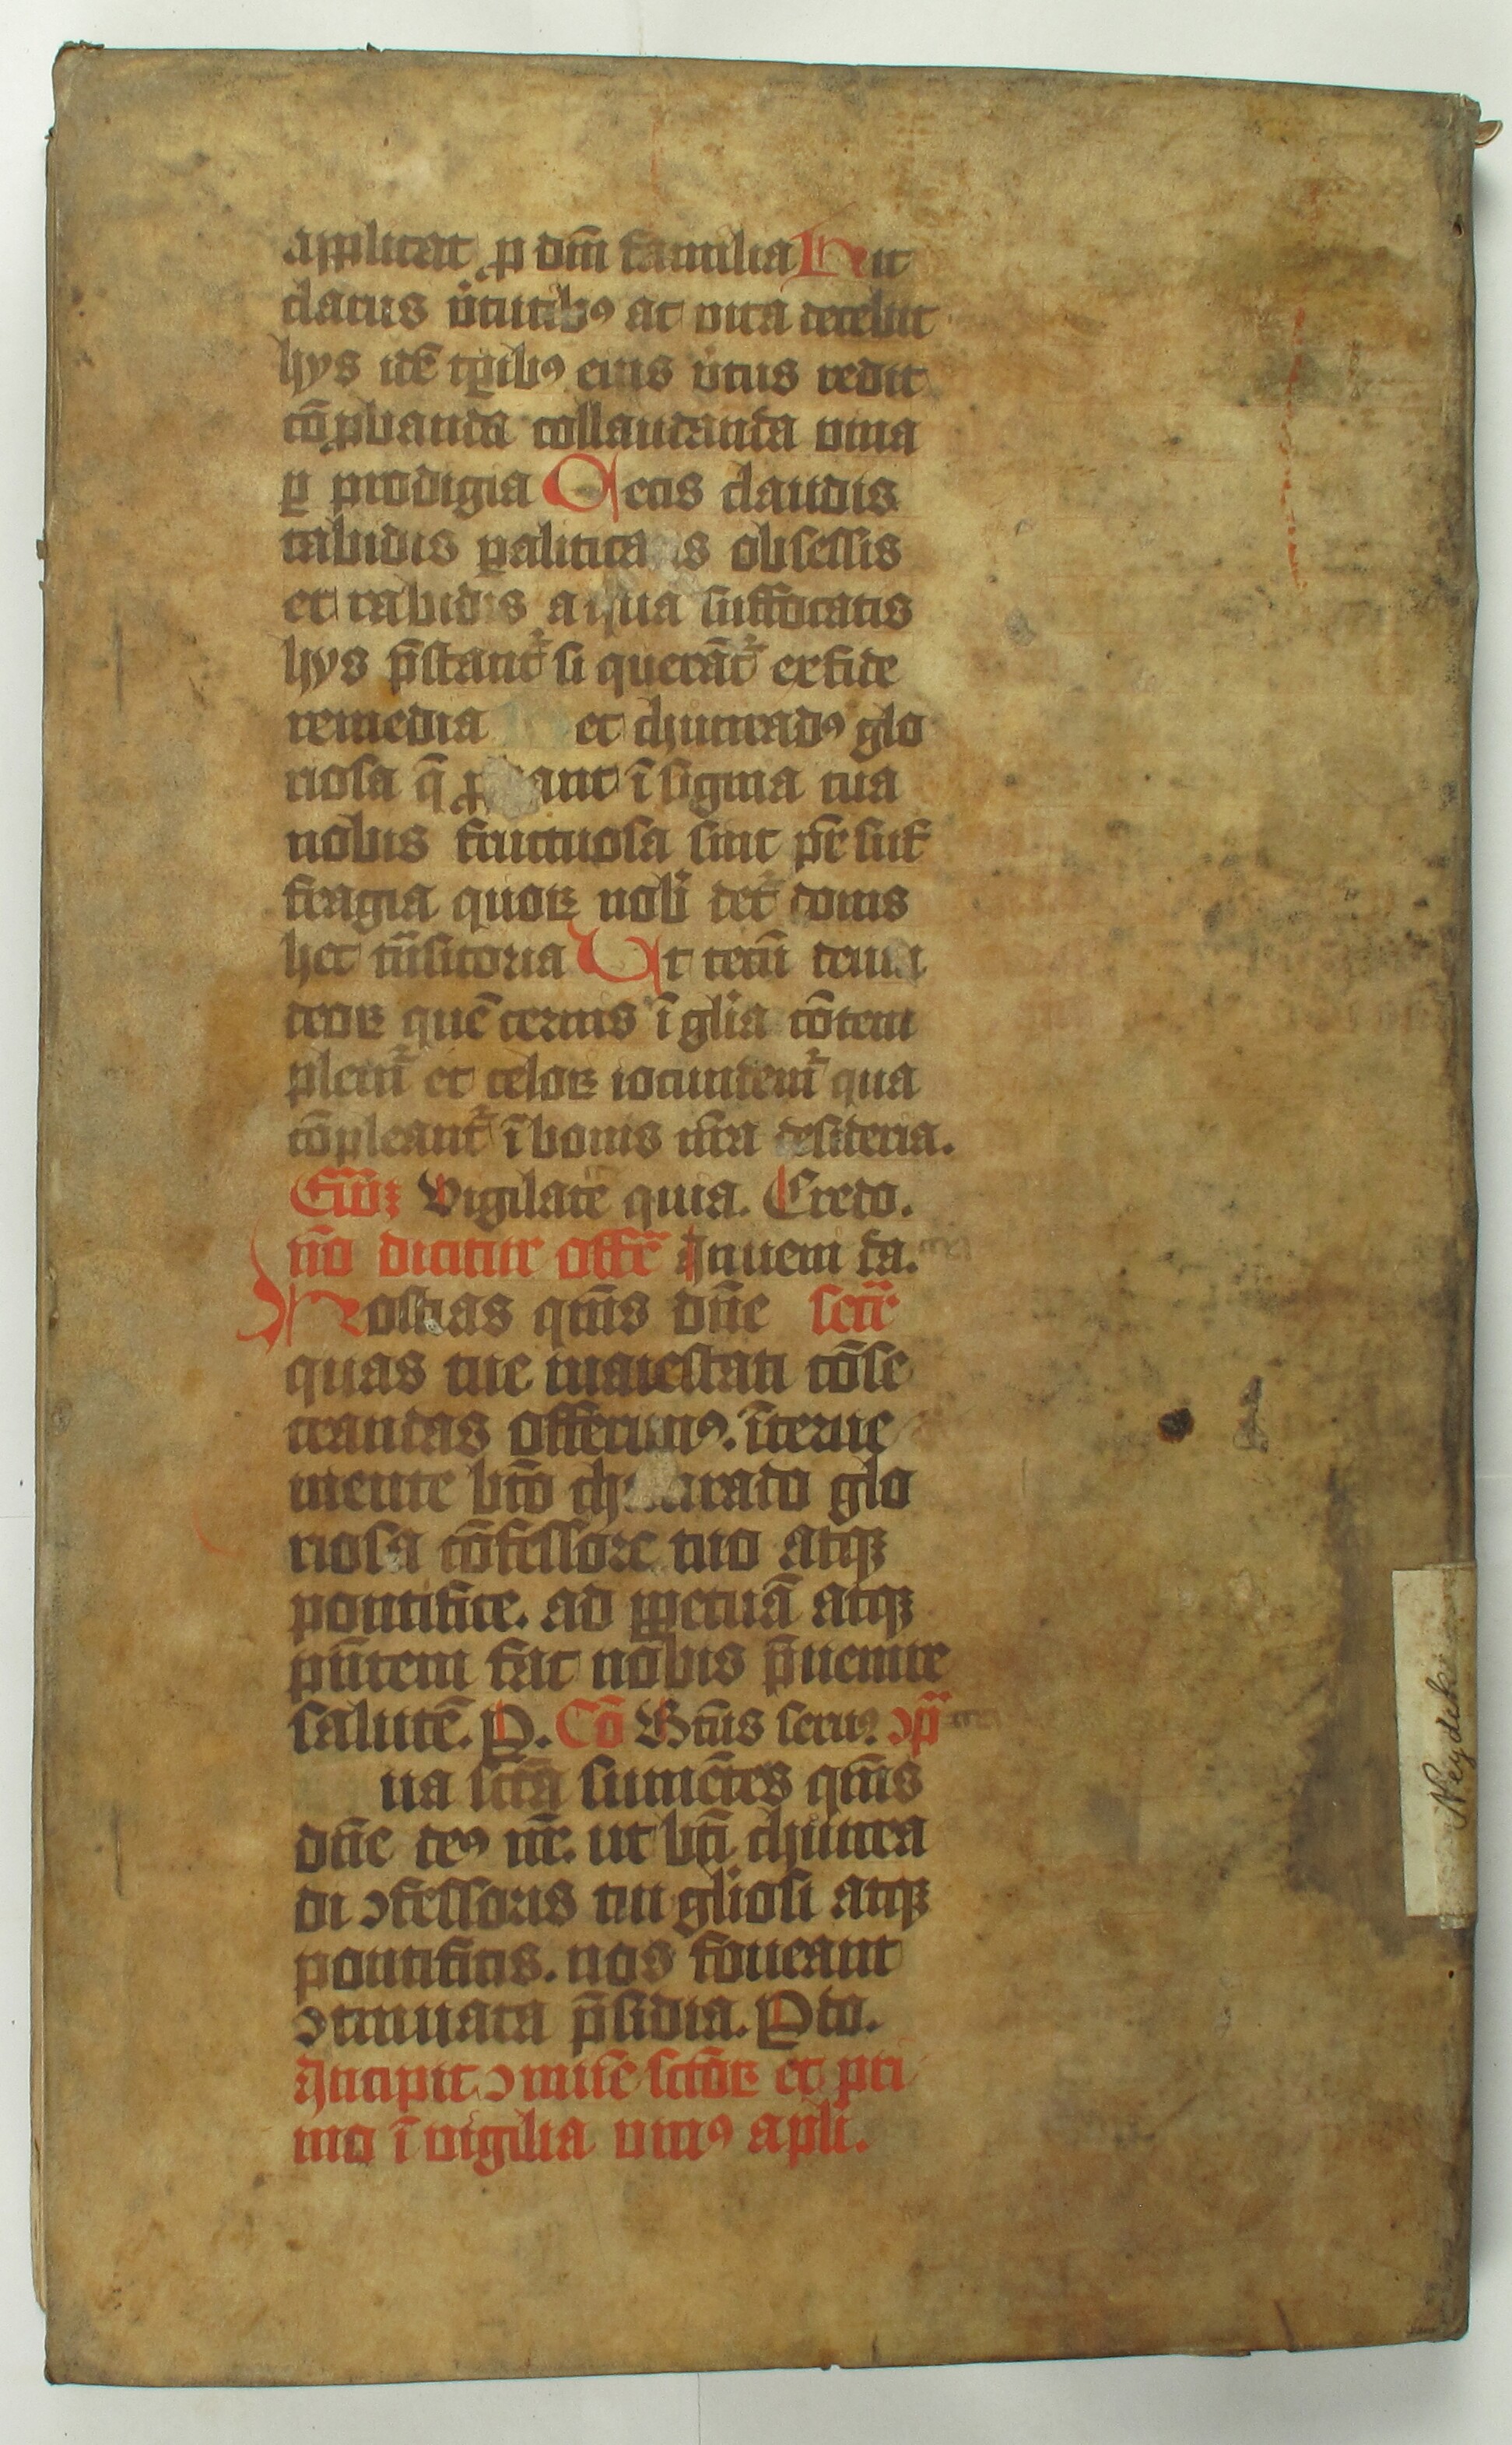 applicat ꝓ dm̄ familia Hic
clarus v̾tutibꝰ ac vita celebrit
hys itē tp̄ibꝰ eius v̾tus redit
cōꝓbanda collaudanda mira
ꝑ prodigia Cecis claudis
rabidis ꝑalitica is obsessis
et rabidis aqua suffocatis
hys p̄stant᷑ si querāt᷑ ex fide
remedia et chunradꝰ glo
riosa q̄ ant ī signia tua
nobis fructuosa sint p̄r suf
fragia quoꝝ nob̄ det᷑ donis
hec trāsitoria Ut tecū
deoꝝ quē cernis ī gl̄ia cōtem
plem̄᷑ et celoꝝ iocundem̄᷑ qua
cōpleant᷑ ī bonis nr̄a desideria.
Ew̄ Vigilate quia. Credo.
nō dicitur offr̄ Inueni da.
Hostias qm̄s dn̄e secr̄
quas tue maiestati cōse
crandas offerimꝰ. īterue
niente bt̄o chunrado glo
rioso cōfessore tuo atqꝫ
pontifice. ad ꝑpetuā atqꝫ
pn̄tem fac nobis ꝑuenire
salutē. P. Cō Bt̄us seruꝰ ꝯp̄
ua scā sumētes qm̄s
dn̄e deꝰ nr̄. ut bt̄i chunra
di ꝯfessoris tui gl̄iosi atqꝫ
pontificis. nos foueant
ꝯtinuata p̄sidia. P do.
Incipit ꝯmune sctōꝝ et pri
mo ī vigilia vniꝰ apl̄i.
Neydek